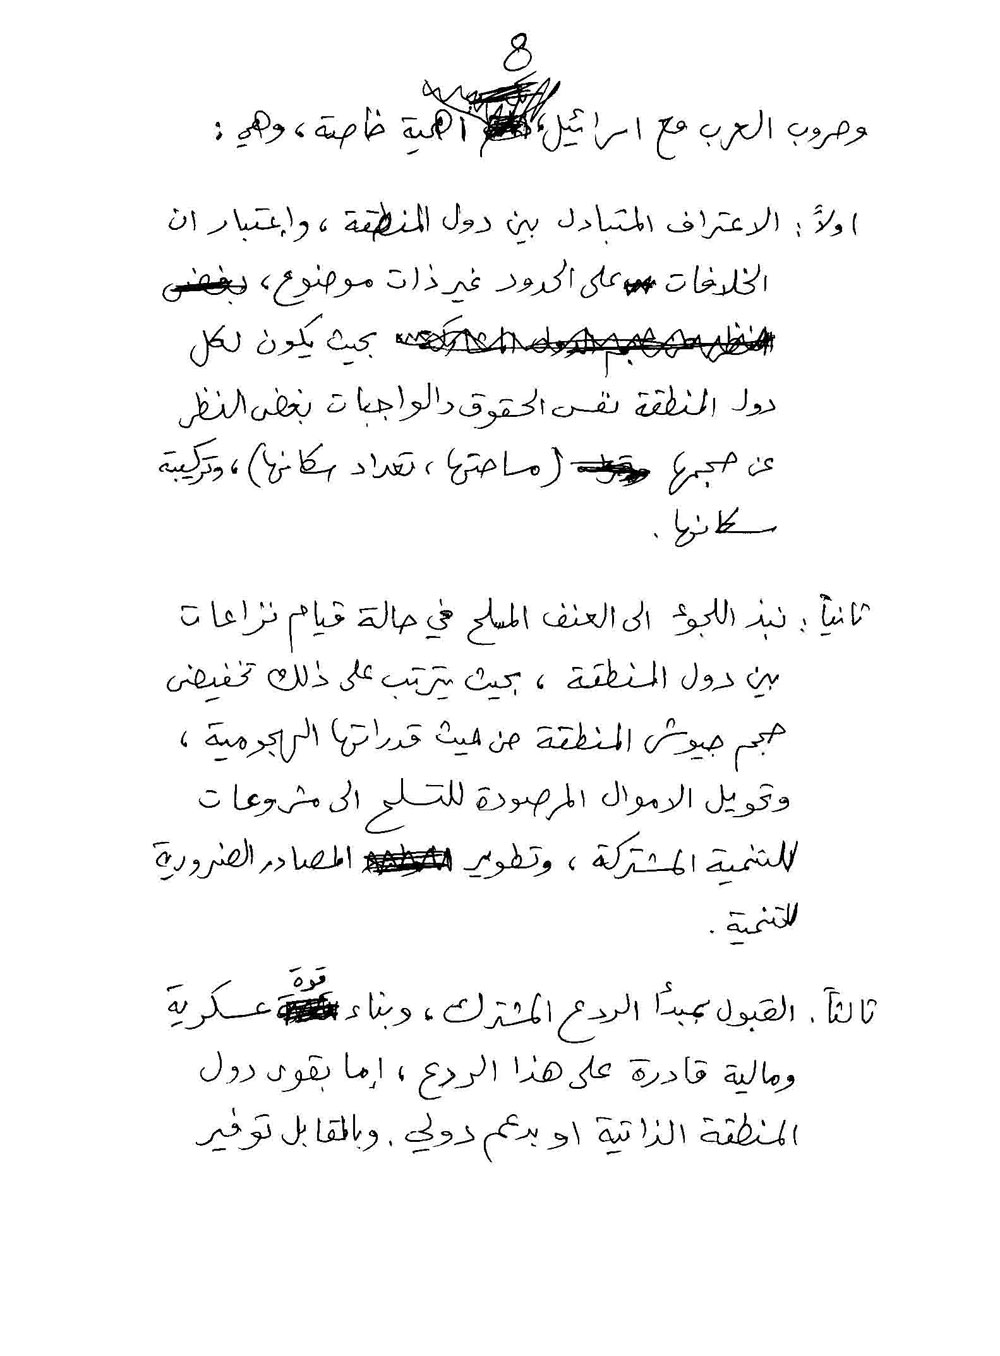 8
وحروب العرب مع اسرائيل، اهمية خاصة، وهي:
اولاً: الاعتراف المتبادل بين دول المنطقة، وإعتبار ان
الخلافات على الحدود غير ذات موضوع، بغض
بحيث يكون لكل
دول المنطقة نفس الحقوق والواجبات بغض النظر
عن حجمها (مساحتها، تعداد سكانها)، وتركيبة
سكانها.
ثانياً: نبذ اللجوء الى العنف المسلح في حالة قيام نزاعات
بين دول المنطقة، بحيث يترتب على ذلك تخفيض
حجم جيوش المنطقة من حيث قدراتها الهجومية،
وتحويل الاموال المرصودة للتسلح الى مشروعات
للتنمية المشتركة، وتطوير المصادر الضرورية
للتنمية.
ثالثاً. القبول بمبدأ الردع المشترك، وبناء قوة عسكرية
ومالية قادرة على هذا الردع، إما بقوى دول
المنطقة الذاتية او بدعم دولي. وبالمقابل توفير